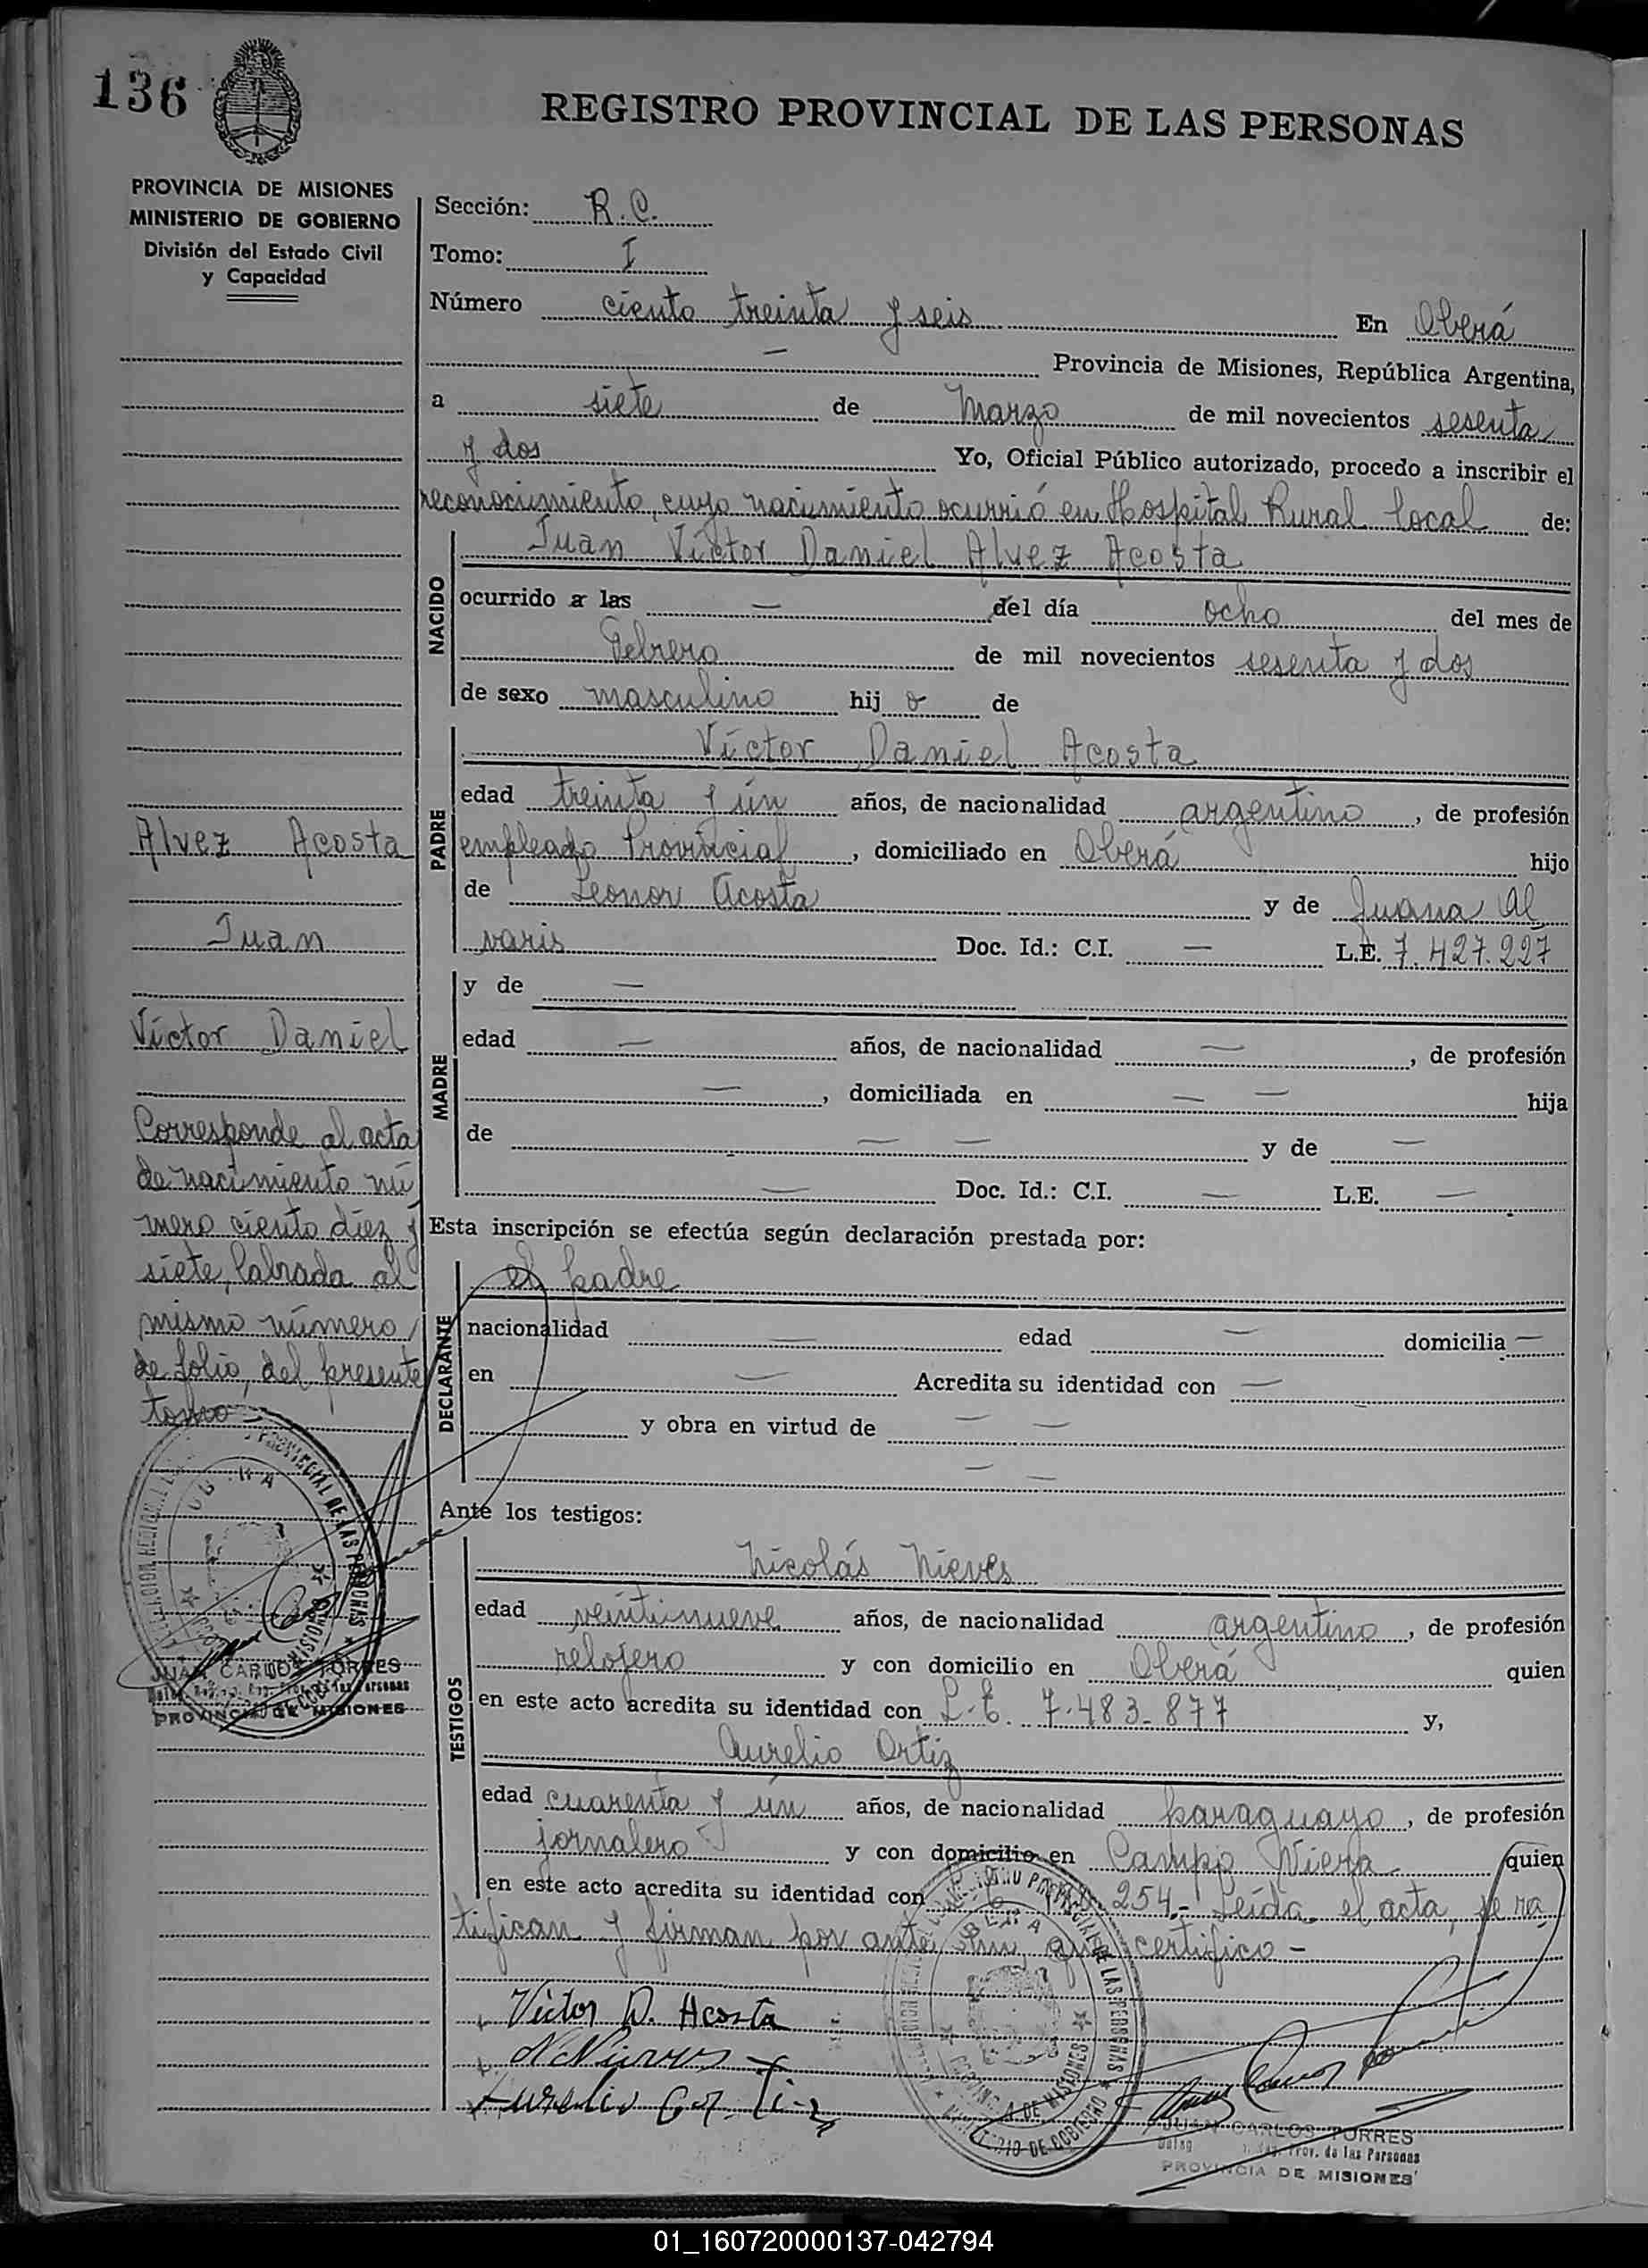 136
REGISTRO PROVINCIAL DE LAS PERSONAS
PROVINCIA DE MISIONES
MINISTERIO DE GOBIERNO
División del Estado Civil
y Capacidad
Sección: R.C.
Tomo: I
Número ciento treinta y seis En Oberá
— Provincia de Misiones, República Argentina,
a siete de Marzo de mil novecientos sesenta
y dos Yo, Oficial Público autorizado, procedo a inscribir el
reconocimiento, cuyo nacimiento ocurrió en Hospital Rural local de:
NACIDO
Juan Víctor Daniel Alvez Acosta
ocurrido a las — del día ocho del mes de
Febrero de mil novecientos sesenta y dos
de sexo masculino hij o de
PADRE
Víctor Daniel Acosta
edad treinta y ún años, de nacionalidad argentino, de profesión
empleado Provincial, domiciliado en Oberá hijo
de Leonor Acosta y de Juana Al
varis Doc. Id.: C.I. — L.E. 7.427.227
MADRE
y de —
edad — años, de nacionalidad —, de profesión
—, domiciliada en — — hija
de — — y de —
— Doc. Id.: C.I. — L.E. —
Esta inscripción se efectúa según declaración prestada por:
DECLARANTE
el padre
nacionalidad — edad — domicilia —
en — Acredita su identidad con —
y obra en virtud de — —
— —
Ante los testigos:
TESTIGOS
Nicolás Nieves
edad veintinueve años, de nacionalidad argentino, de profesión
relojero y con domicilio en Oberá quien
en este acto acredita su identidad con L.E. 7.483.877 y,
Aurelio Ortiz
edad cuarenta y ún años, de nacionalidad paraguayo, de profesión
jornalero y con domicilio en Campo Viera quien
en este acto acredita su identidad con 254.- Leída el acta, se ra
tifican y firman por ante mi, que certifico -
Victor D. Acosta
N Nieves
Aurelio Ortiz
JUAN CARLOS TORRES
Prov. de las Personas
PROVINCIA DE MISIONES
Alvez Acosta
Juan
Víctor Daniel
Corresponde al acta
de nacimiento nú
mero ciento diez y
siete, labrada al
mismo número
de folio, del presente
tomo -
JUAN CARLOS TORRES
Prov. de las Personas
PROVINCIA DE MISIONES
01_160720000137-042794